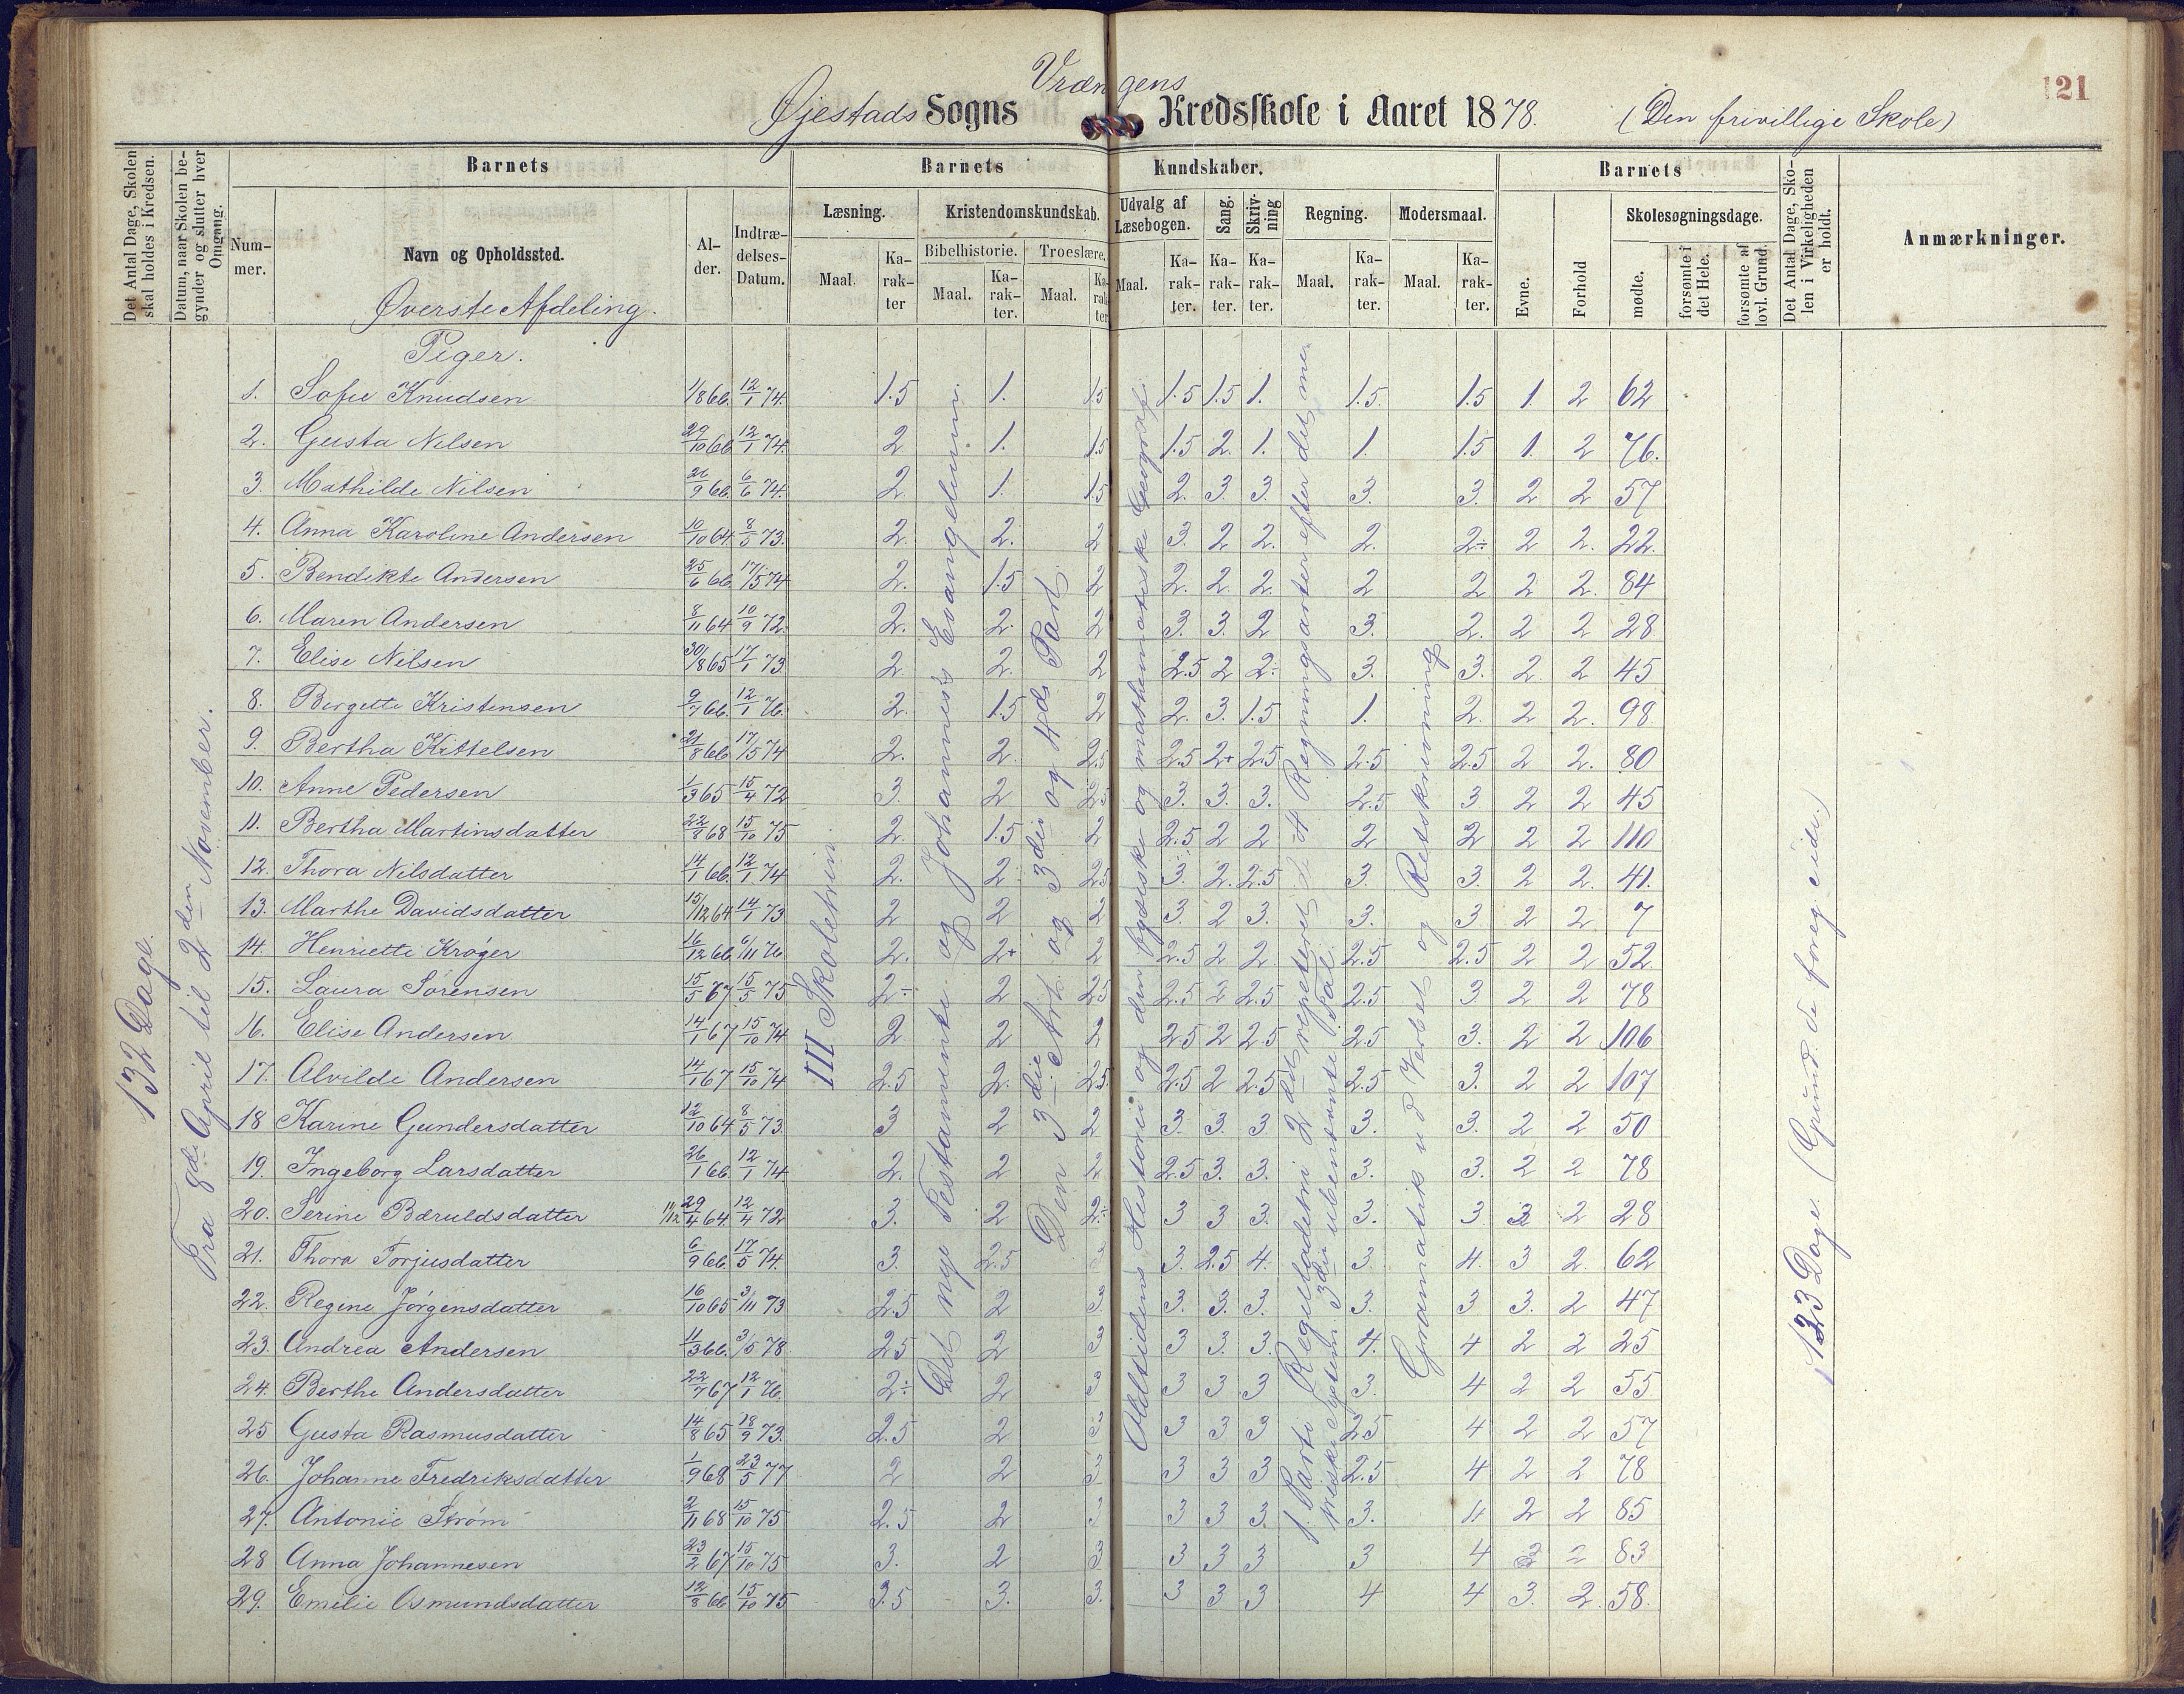 Vrængens
121
Øjestads Sogns Kredsskole i Aaret 1878. (Den frivillige Skole)
Det Antal Dage, Skolen skal holdes i Kredsen.
Datum, naar Skolen begynder og slutter hver Omgang.
Barnets
Nummer.
Navn og Opholdssted.
Alder.
Indtrædelses-Datum.
Barnets Kundskaber.
Læsning.
Maal.
Karakter
Kristendomskundskab.
Bibelhistorie.
Maal.
Karakter.
Troeslære.
Maal.
Karakter
Udvalg af Læsebogen.
Maal.
Karakter.
Sang.
Karakter.
Skrivning
Karakter.
Regning.
Maal.
Karakter.
Modersmaal.
Maal.
Karakter.
Barnets
Evne.
Forhold
Skolesøgningsdage.
mødte.
forsømte i det Hele.
forsømte af lovl. Grund.
Det Antal Dage, Skolen i Virkeligheden er holdt.
Anmærkninger.
Øverste Afdeling.
Piger.
132 Dage.
Fra 8de April til 2den November.
III Skoletrin
Det nye Testamente og Johannes's Evangelium.
Den 3die Art. og 3die og 4de Part.
Oldtidens Historie og den fysiske og mathematiske Geografi.
1. Parti Regelladetri 2det repeteret de 4 Regningsarter efter det me-
triske System. 3die ubenævnte Tal.
Gramatik ud Verbet og Retskrivning
123 Dage. (Grund: de foreg. Side.)
1. Sofie Knudsen 1/8 66. 12/1 74. 1.5 1. 1.5 1.5 1.5 1. 1.5. 1.5 1. 2 62
2. Gusta Nilsen 29/10 66 12/1 74. 2 1. 1.5 1.5 2. 1. 1. 1.5 1. 2 76.
3. Mathilde Nilsen 26/9 66. 6/6 74. 2 1. 1.5 2. 3. 3. 3. 3. 2 2 57
4. Anna Karoline Andersen 10/10 64 8/5 73. 2. 2. 2 3. 2 2. 2. 2÷ 2 2. 22.
5. Bendikte Andersen 25/6 66. 17/5 74 2. 1.5 2 2. 2. 2. 2 2 2 2. 84
6. Maren Andersen 8/11 64 10/9 72. 2. 2. 2 3. 3. 2 3. 2. 2 2 28
7. Elise Nilsen 30/8 65 17/1 73 2. 2. 2 2.5 2 2÷ 3. 3. 2 2 45
8. Bergette Kristensen 9/7 66. 12/1 76. 2. 1.5 2 2. 3. 1.5 1. 2. 2 2. 98
9. Bertha Kittelsen 21/8 66 17/5 74 2. 2. 2.5 2.5 2+ 2.5 2.5 2.5 2 2. 80
10. Anne Pedersen 1/3 65 15/4 72 3. 2 2.5 3. 3. 3. 2.5 3 2 2 45
11. Bertha Martinsdatter 22/8 68 15/10 75 2. 1.5 2 2.5 2 2 2 2 2 2 110
12. Thora Nilsdatter 14/1 66. 12/1 74 2. 2 2.5 3. 2. 2.5 3. 3. 2 2. 41.
13. Marthe Davidsdatter 15/12 64 14/1 73 2 2 2 3. 2 3. 3. 3 2 2. 7
14. Henriette Krøger 16/12 66 6/11 76 2. 2+ 2 2.5 2 2. 2.5 2.5 2 2 52
15. Laura Sørensen 15/5 67 15/5 75 2÷ 2 2.5 2.5 2 2.5 2.5 3 2 2 78
16. Elise Andersen 14/1 67 15/10 74 2. 2 2 2.5 2 2.5 2.5 3. 2 2 106
17. Alvilde Andersen 14/1 67 15/10 74 2.5 2. 2.5. 2.5 2 2.5 2.5 3. 2 2 107
18 Karine Gundersdatter 12/10 64 8/5 73. 3 2 2 3. 3. 3 3. 3. 2 2 50
19. Ingeborg Larsdatter 26/1 66. 12/1 74 2. 2 2 2.5 3. 3. 3. 3. 2 2 78
20. Serine Baruldsdatter 11/12 29/4 64 12/4 72 3. 2 2÷ 3 3 3. 3. 3 3 2 28
21. Thora Torjusdatter 6/9 66. 17/5 74. 3. 2.5 3 3. 2.5 4. 3. 4. 3 2. 62
22. Regine Jørgensdatter 16/10 65 3/11 73 2.5 2 3 3. 3. 3. 3. 3 3. 2 47
23. Andrea Andersen 11/3 66. 3/5 78. 2.5 2 3 3 3. 3. 4. 4 2 2 25
24. Berthe Andersdatter 22/7 67 12/1 76. 2÷ 2 3 3 3 3 3. 4 2 2 55
25 Gusta Rasmusdatter 14/8 65 18/9 73. 2.5 2 3 3 3 3 2.5 4 2 2 57
26. Johanne Fredriksdatter 1/9 68 23/5 77 2 2 3 3 3 3 2.5 4 2 2 78
27. Antonie Strøm 2/11 68 15/10 75 2.5 2 3 3 3 3. 3. 4 2 2 85
28 Anna Johannesen 23/2 67 15/10 75 3. 2 3 3 3 3 3 4 3 2 83
29. Emilie Osmundsdatter 12/8 66 15/10 75 3.5 3. 3. 3 3 3 4 4 3. 2. 58.